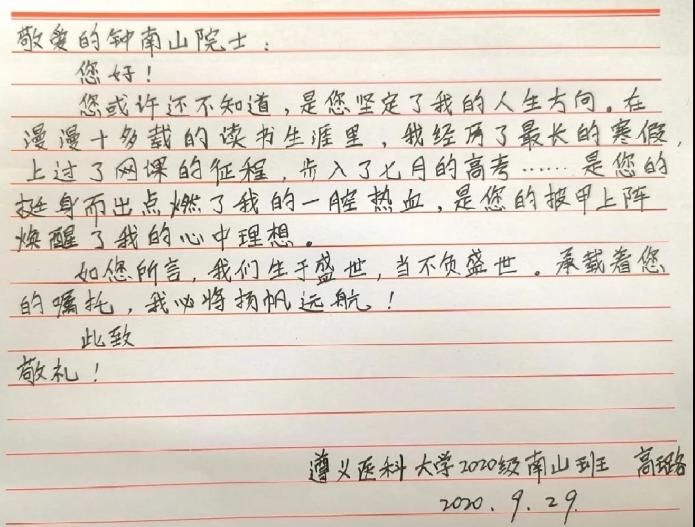 敬爱的钟南山院士：
您好！
您或许还不知道，是您坚定了我的人生方向。在
漫漫十多载的读书生涯里，我经历了最长的寒假，
上过了网课的征程，步入了七月的高考……是您的
挺身而出点燃了我的一腔热血，是您的披甲上阵
焕醒了我的心中理想。
如您所言，我们生于盛世，当不负盛世。承载着您
的嘱托，我必将扬帆远航！
此致
敬礼！
遵义医科大学2020级南山班 高璐
2020.9.29